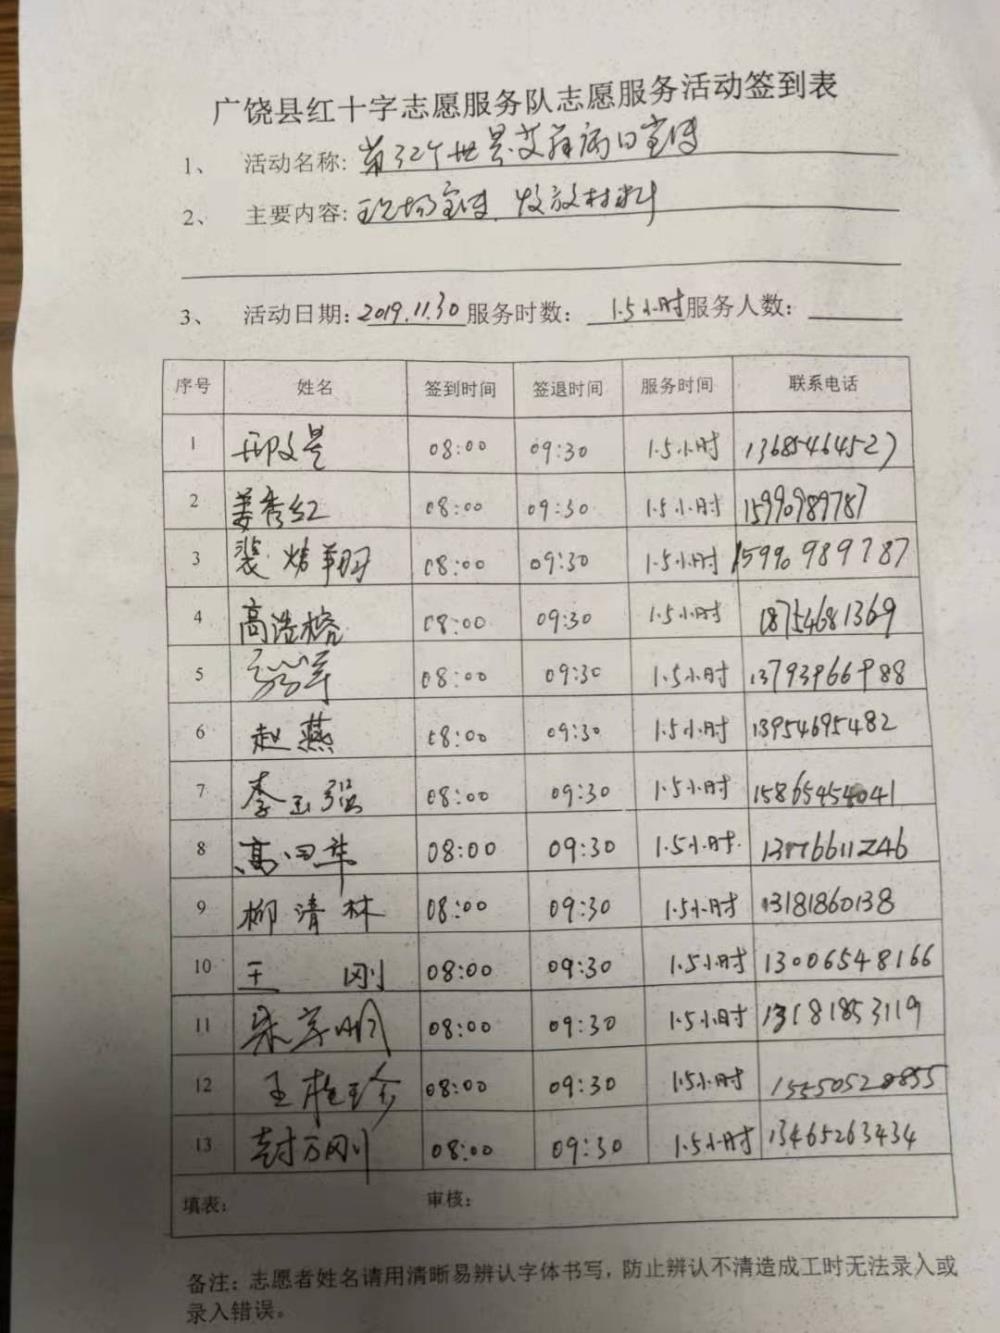 广饶县红十字志愿服务队志愿服务活动签到表
1、 活动名称: 第32个世界艾滋病日宣传
2、 主要内容: 现场宣传、发放材料
3、 活动日期: 2019.11.30 服务时数: 1.5小时 服务人数:
序号 姓名 签到时间 签退时间 服务时间 联系电话
1 邢文景 08:00 09:30 1.5小时 13685464527
2 姜秀红 08:00 09:30 1.5小时 15990989787
3 裴炜翔 08:00 09:30 1.5小时 15990989787
4 高浩榕 08:00 09:30 1.5小时 18754681369
5 08:00 09:30 1.5小时
6 赵燕 08:00 09:30 1.5小时 13954695482
7 李玉强 08:00 09:30 1.5小时
8 高四华 08:00 09:30 1.5小时
9 柳清林 08:00 09:30 1.5小时 13181860138
10 王刚 08:00 09:30 1.5小时 13006548166
11 08:00 09:30 1.5小时 13181853119
12 王桂珍 08:00 09:30 1.5小时
13 封万刚 08:00 09:30 1.5小时 13465263434
填表: 审核:
备注: 志愿者姓名请用清晰易辨认字体书写, 防止辨认不清造成工时无法录入或
录入错误。